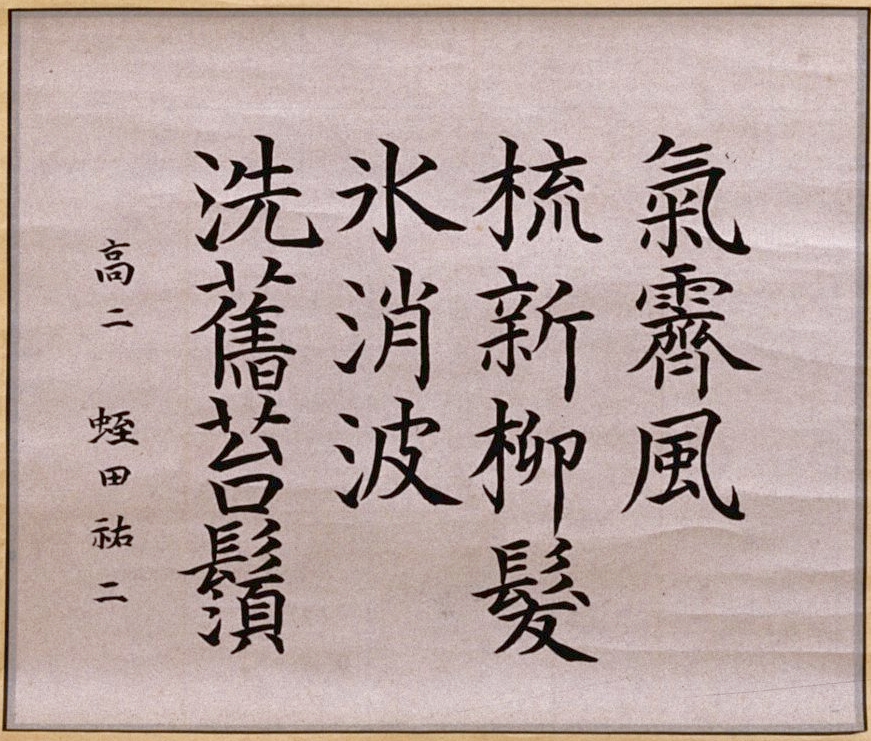 氣霽風
梳新柳髮
氷消波
洗舊苔鬚
高二 蛭田祐二